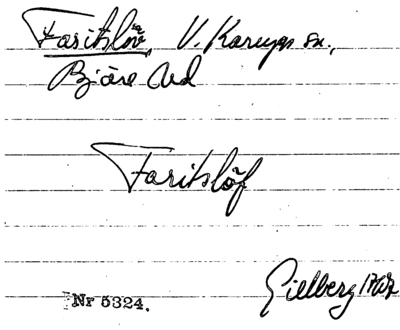 Faritslöv, V. Karups sn.,
Bjäre hd
Faritslöf
Gillberg 1767
Nr 5324.